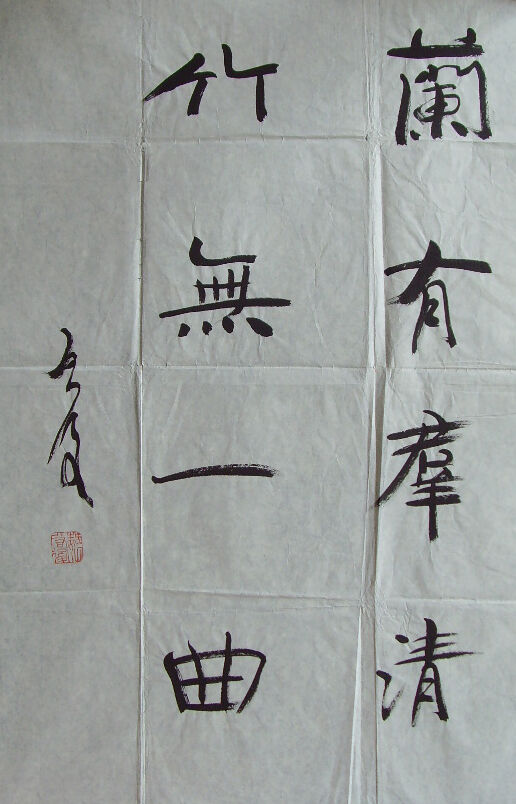 蘭有羣清
竹無一曲